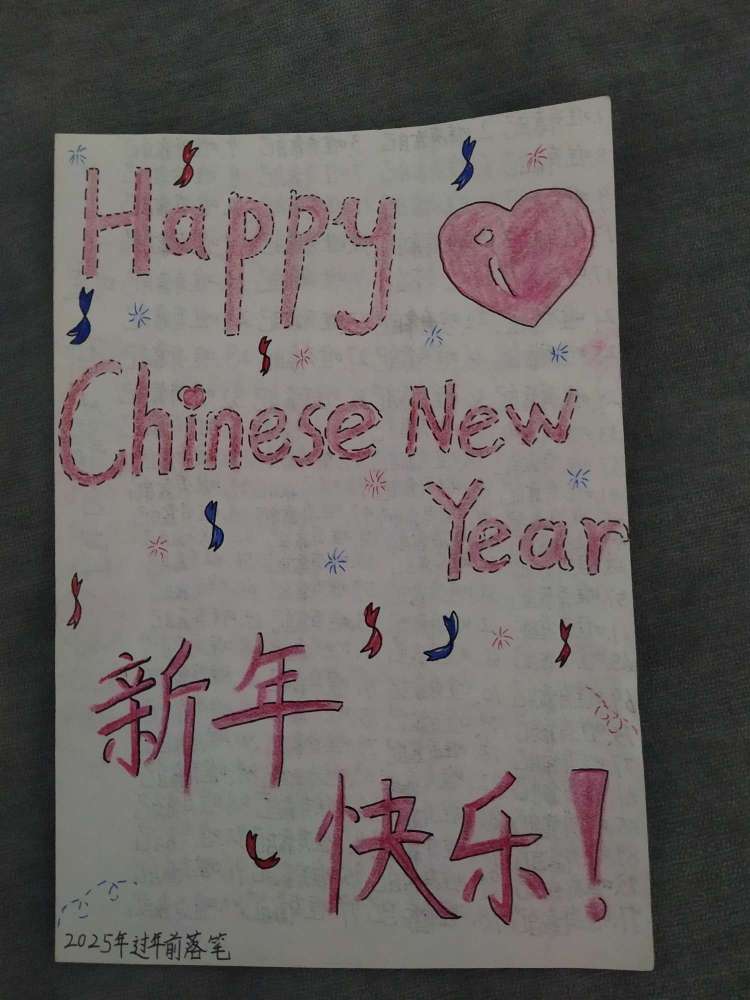 Happy
Chinese New
Year
新年
快乐!
2025年过年前落笔